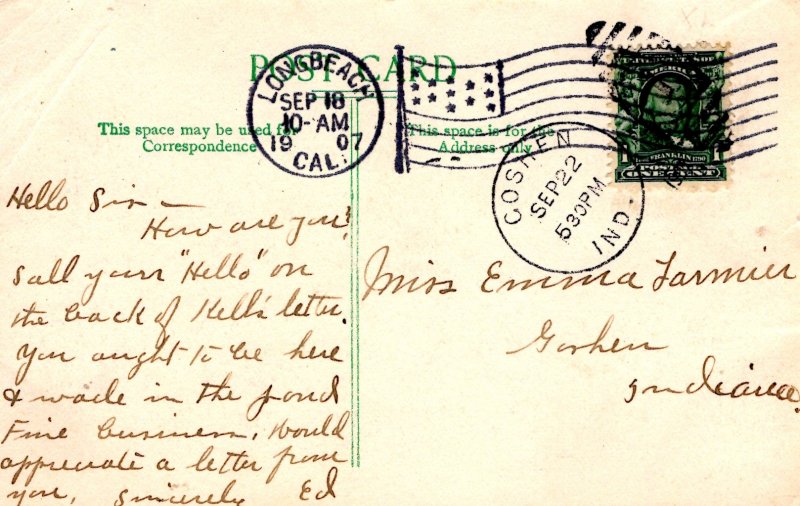 POST CARD
LONGBEACH
SEP 18
10-AM
19 07
CAL.
This space may be used for
Correspondence
This space is for the
Address only
GOSHEN
SEP 22
530PM
IND.
FRANKLIN
ONE CENT
Hello Sis –
How are you?
Saw your "Hello" on
the back of Nell's letter.
You ought to be here
& wade in the pond
Fine business. Would
appreciate a letter from
you, Sincerely Ed
Miss Emma Farmier
Goshen
Indiana.